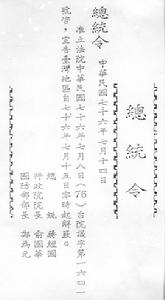 總統令
總統令
中華民國七十六年七月十四日
准立法院中華民國七十六年七月八日(76)台院議字第一六四一
號咨,宣告臺灣地區自七十六年七月十五日零時起解嚴。
總統 蔣經國
行政院院長 俞國華
國防部部長 鄭為元